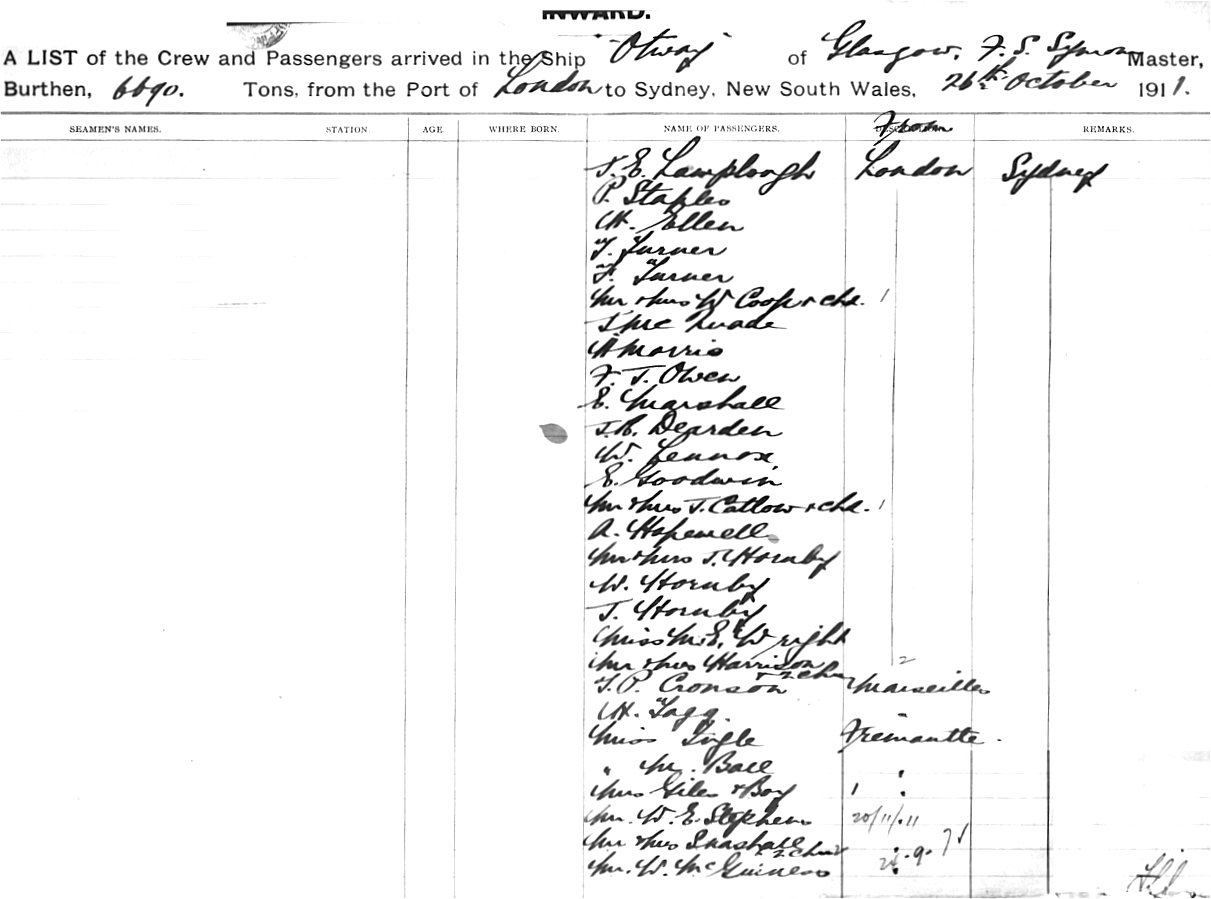 INWARD.
A LIST of the Crew and Passengers arrived in the Ship "Otway" of Glasgow, F. S. Symons Master,
Burthen, 6690. Tons, from the Port of London to Sydney, New South Wales, 26th October 1911.
SEAMEN'S NAMES. STATION. AGE. WHERE BORN. NAME OF PASSENGERS. From REMARKS.
J. E. Lamplough London Sydney
P. Staples
H. Ellen
T. Turner
F. Turner
Mr & Mrs W Coop & chd. 1
J McQuade
H Morris
F. J. Owen
E. Marshall
J. R. Dearden
W. Lennox
E. Goodwin
Mr & Mrs J. Catlow & chd. 1
A. Hopewell
Mr & Mrs J. Hornby
W. Hornby
J. Hornby
Miss M. E. Wright
Mr & Mrs Harrison & 2 chn 2
J. P. Cronson Marseilles
H. Tagg.
Miss Tingle Fremantle.
" M. Ball
Mrs Giles & Boy 1
Mr. W. E. Stephens 20/11/11
Mr & Mrs Snashall & 2 chn 2
Mr. W. McGuiness